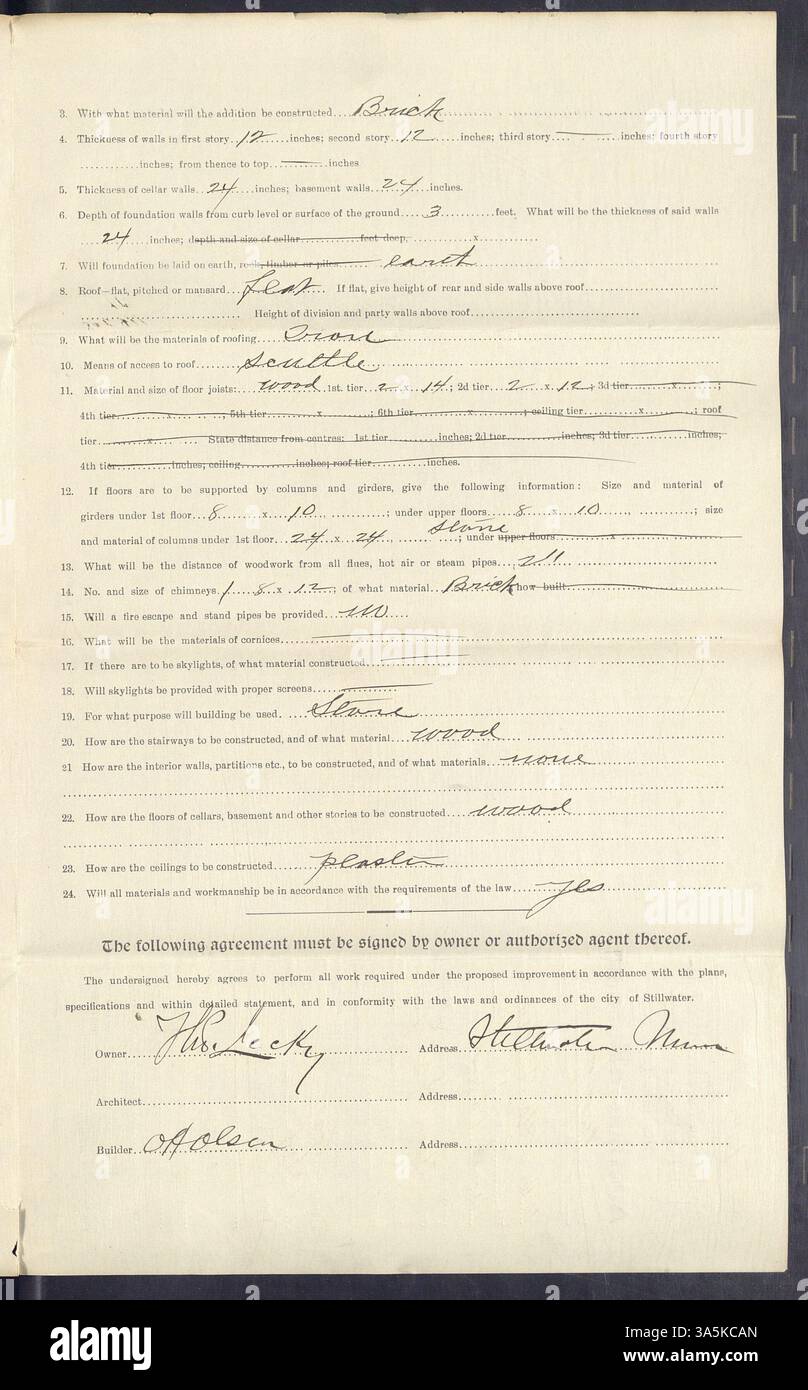 3. With what material will the addition be constructed....Brick
4. Thickness of walls in first story 12 inches; second story 12 inches; third story inches; fourth story
inches; from thence to top inches
5. Thickness of cellar walls 24 inches; basement walls 24 inches.
6. Depth of foundation walls from curb level or surface of the ground 3 feet. What will be the thickness of said walls
24 inches; depth and size of cellar feet deep, x
7. Will foundation be laid on earth, rock, timber or piles earth
8. Roof—flat, pitched or mansard flat If flat, give height of rear and side walls above roof
Height of division and party walls above roof
9. What will be the materials of roofing Iron
10. Means of access to roof scuttle
11. Material and size of floor joists: wood 1st. tier 2 x 14; 2d tier 2 x 12; 3d tier x ;
4th tier x ; 5th tier x ; 6th tier x ; ceiling tier x ; roof
tier x State distance from centres: 1st tier inches; 2d tier inches; 3d tier inches;
4th tier inches; ceiling inches; roof tier inches.
12. If floors are to be supported by columns and girders, give the following information: Size and material of
girders under 1st floor 8 x 10 ; under upper floors 8 x 10 ; size
and material of columns under 1st floor 24 x 24 stone ; under upper floors x
13. What will be the distance of woodwork from all flues, hot air or steam pipes 2"
14. No. and size of chimneys 1 8 x 12 ; of what material Brick how built
15. Will a fire escape and stand pipes be provided no
16. What will be the materials of cornices
17. If there are to be skylights, of what material constructed
18. Will skylights be provided with proper screens
19. For what purpose will building be used. Store
20. How are the stairways to be constructed, and of what material wood
21 How are the interior walls, partitions etc., to be constructed, and of what materials none
22. How are the floors of cellars, basement and other stories to be constructed wood
23. How are the ceilings to be constructed plaster
24. Will all materials and workmanship be in accordance with the requirements of the law yes
The following agreement must be signed by owner or authorized agent thereof.
The undersigned hereby agrees to perform all work required under the proposed improvement in accordance with the plans,
specifications and within detailed statement, and in conformity with the laws and ordinances of the city of Stillwater.
Owner Thos. Lecky Address Stillwater Minn
Architect Address
Builder O H Olsen Address
alamy
Image ID: 3A5KCAN
www.alamy.com